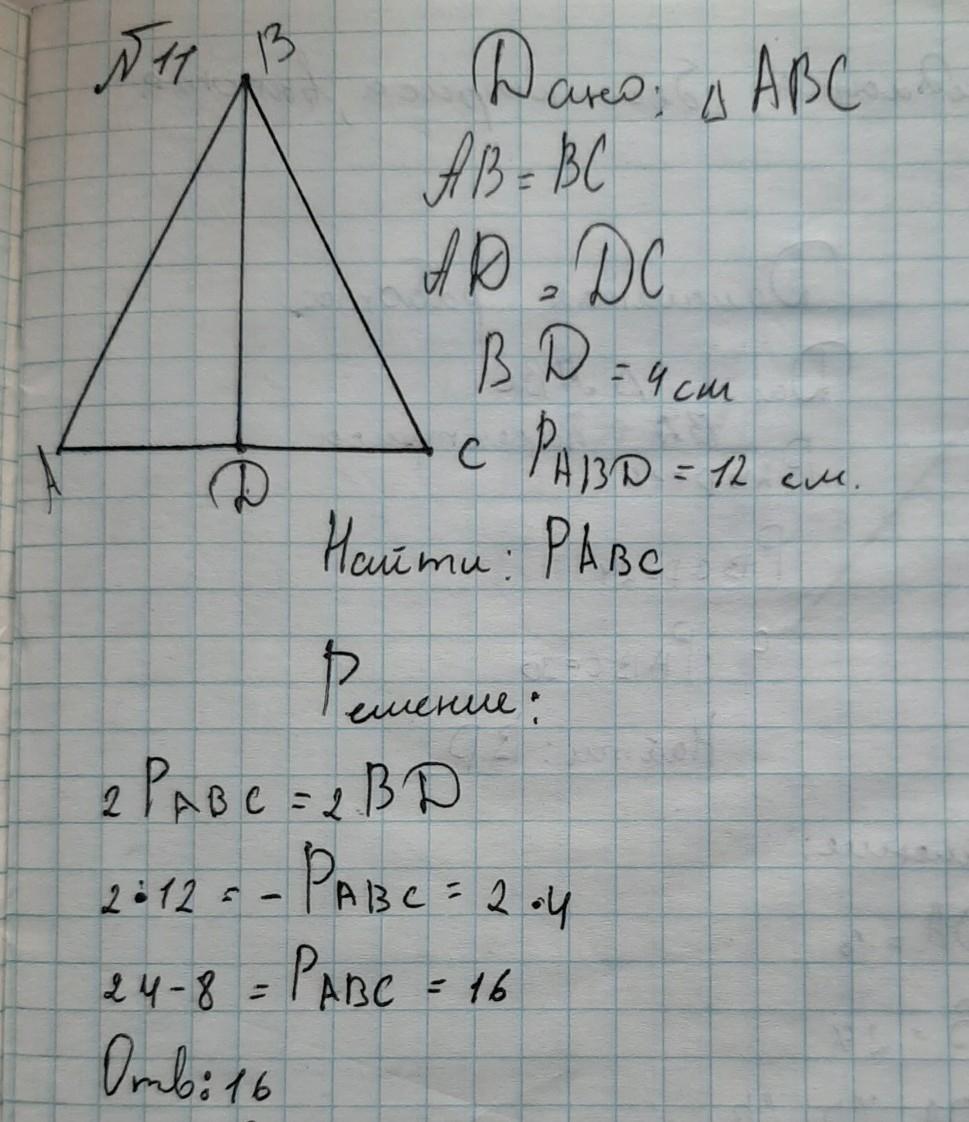 №11
B
Дано: △ ABC
AB = BC
AD = DC
BD = 4 см
A
D
C
P ABD = 12 см.
Найти: P ABC
Решение:
2 P ABC = 2 BD
2·12 = - P ABC = 2·4
24-8 = P ABC = 16
Отв: 16